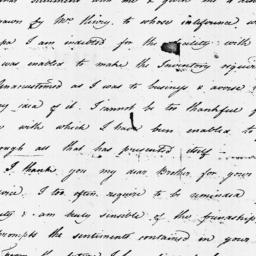 drawn by Mr. Thierry, to whose intelligence w
pa I am indebted for the facility with
was enabled to make the Inventory requir
Unaccustomed as I was to business & averse
my idea of it. I cannot be too thankful f
e with which I have been enabled to
rough all that has presented itself
I thank you my dear Brother for your
vice. I too often require to be reminded
uty & am truly sensible of the friendship
prompts the sentiments contained in your